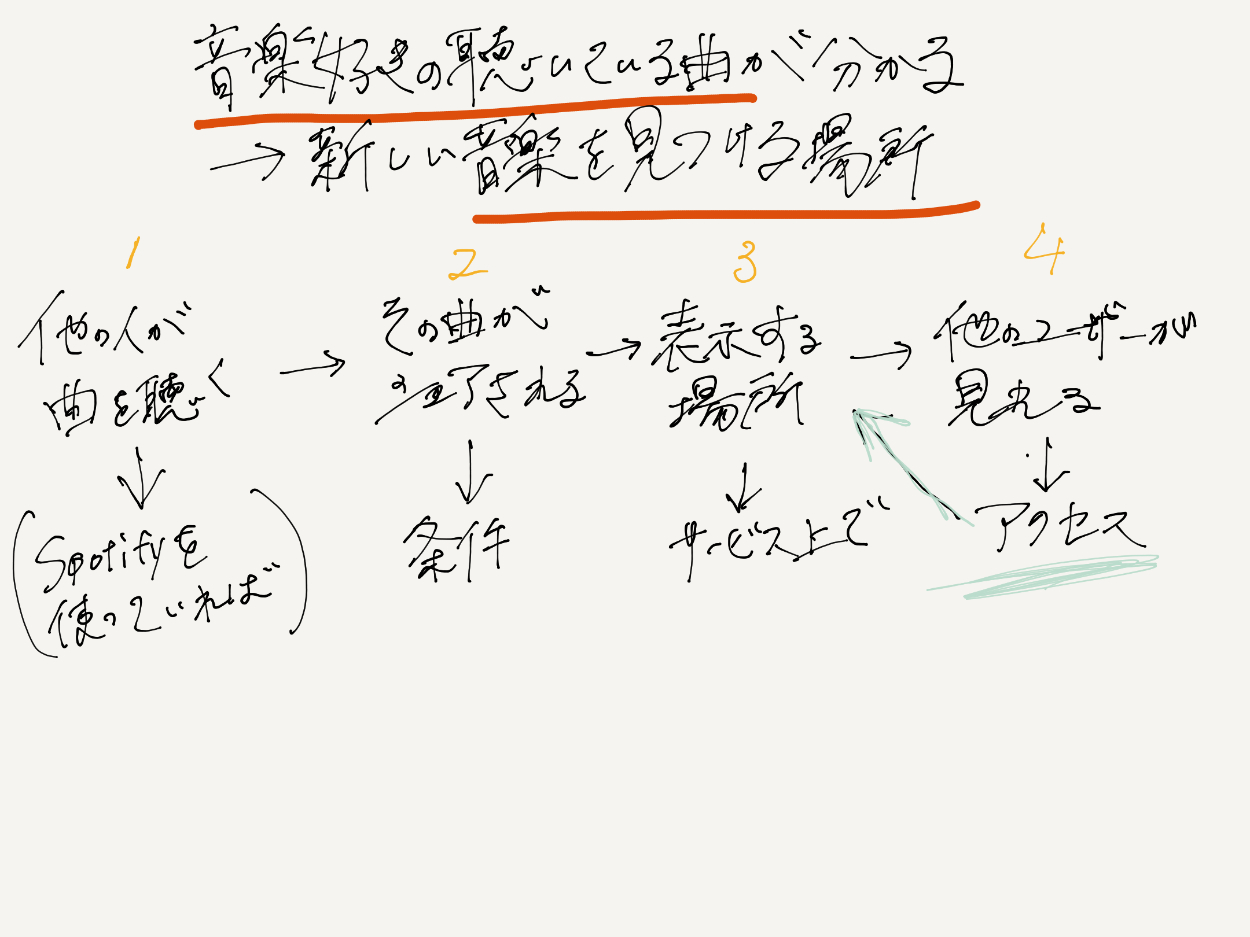 音楽好きの聴いている曲が分かる
→ 新しい音楽を見つける場所
1
他の人が
曲を聴く
↓
(Spotifyを
使っていれば)
→
2
その曲が
される
↓
条件
→
3
表示する
場所
↓
サービス上で
→
4
他のユーザーが
見れる
↓
アクセス